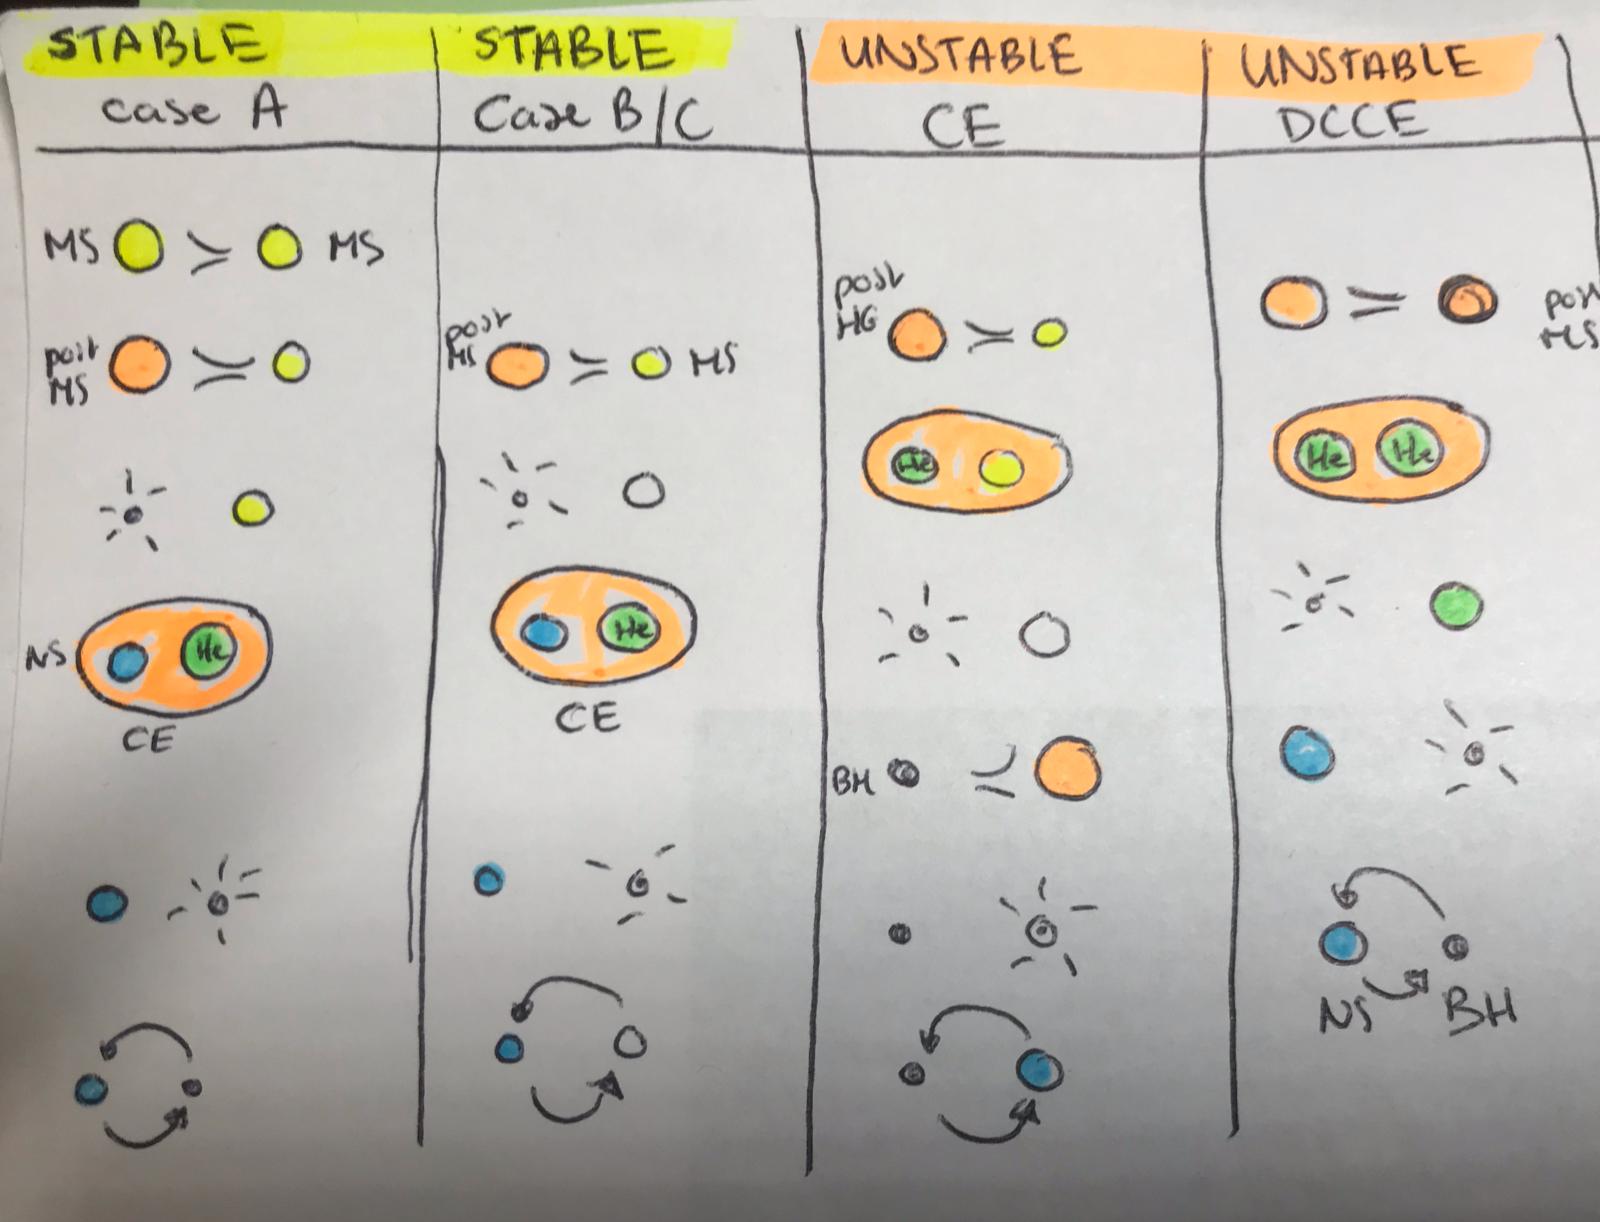 STABLE
case A
MS MS
post
MS
NS He
CE
STABLE
Case B/C
post
MS MS
He
CE
UNSTABLE
CE
post
HG
He
BH
UNSTABLE
DCCE
post
MS
He He
NS BH